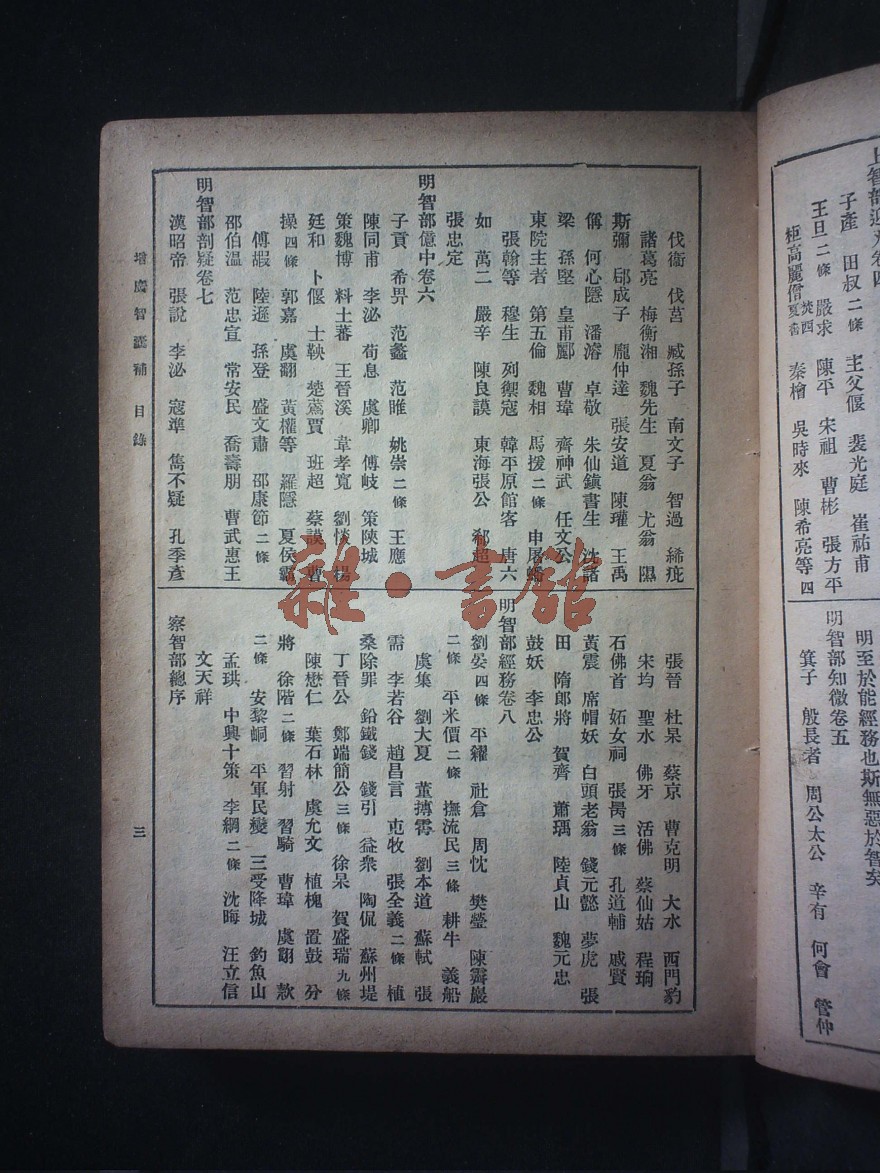 上智部迎刃卷四
子產 田叔二條 主父偃 裴光庭 崔祐甫
王旦二條 嚴求 陳平 宋祖 曹彬 張方平
拒高麗僧焚西夏書 秦檜 吳時來 陳希亮等四
明至於能經務也斯無惡於智矣
明智部知微卷五
箕子 殷長者 周公太公 辛有 何曾 管仲
伐衞 伐莒 臧孫子 南文子 智過 絺疵
諸葛亮 梅衡湘 魏先生 夏翁 尤翁 隰
斯彌 郈成子 龐仲達 張安道 陳瓘 王禹
偁 何心隱 潘濬 卓敬 朱仙鎮書生 沈諸
梁 孫堅 皇甫酈 曹瑋 齊神武 任文公
東院主者 第五倫 魏相 馬援二條 申屠蟠
張翰等 穆生 列禦寇 韓平原館客 唐六
如 萬二 嚴辛 陳良謨 東海張公 郗超
張忠定
明智部億中卷六
子貢 希畀 范蠡 范睢 姚崇二條 王應
陳同甫 李泌 荀息 虞卿 傅岐 策陝城
策魏博 料土蕃 王晉溪 韋孝寬 劉惔 楊
廷和 卜偃 士鞅 楚蔿賈 班超 蔡謨 曹
操四條 郭嘉 虞翻 黃權等 羅隱 夏侯霸
傅嘏 陸遜 孫登 盛文肅 邵康節二條
邵伯温 范忠宣 常安民 喬壽朋 曹武惠王
明智部剖疑卷七
漢昭帝 張說 李泌 寇準 雋不疑 孔季彥
張晉 杜杲 蔡京 曹克明 大水 西門豹
宋均 聖水 佛牙 活佛 蔡仙姑 程珦
石佛首 妬女祠 張昺三條 孔道輔 戚賢
黃震 席帽妖 白頭老翁 錢元懿 夢虎 張
田 隋郎將 賀齊 蕭瑀 陸貞山 魏元忠
鼓妖 李忠公
明智部經務卷八
劉晏四條 平糴 社倉 周忱 樊瑩 陳霽巖
二條 平米價二條 撫流民三條 耕牛 義船
虞集 劉大夏 董搏霄 劉本道 蘇軾 張
需 李若谷 趙昌言 吏牧 張全義二條 植
桑除罪 鉛鐵錢 錢引 益衆 陶侃 蘇州堤
丁晉公 鄭端簡公三條 徐杲 賀盛瑞九條
陳懋仁 葉石林 虞允文 植槐 置鼓 分
將 徐階二條 習射 習騎 曹瑋 虞詡 款
二條 安黎峒 平軍民變 三受降城 釣魚山
孟珙 中興十策 李綱二條 沈晦 汪立信
文天祥
察智部總序
增廣智囊補 目錄
三
雜·書館